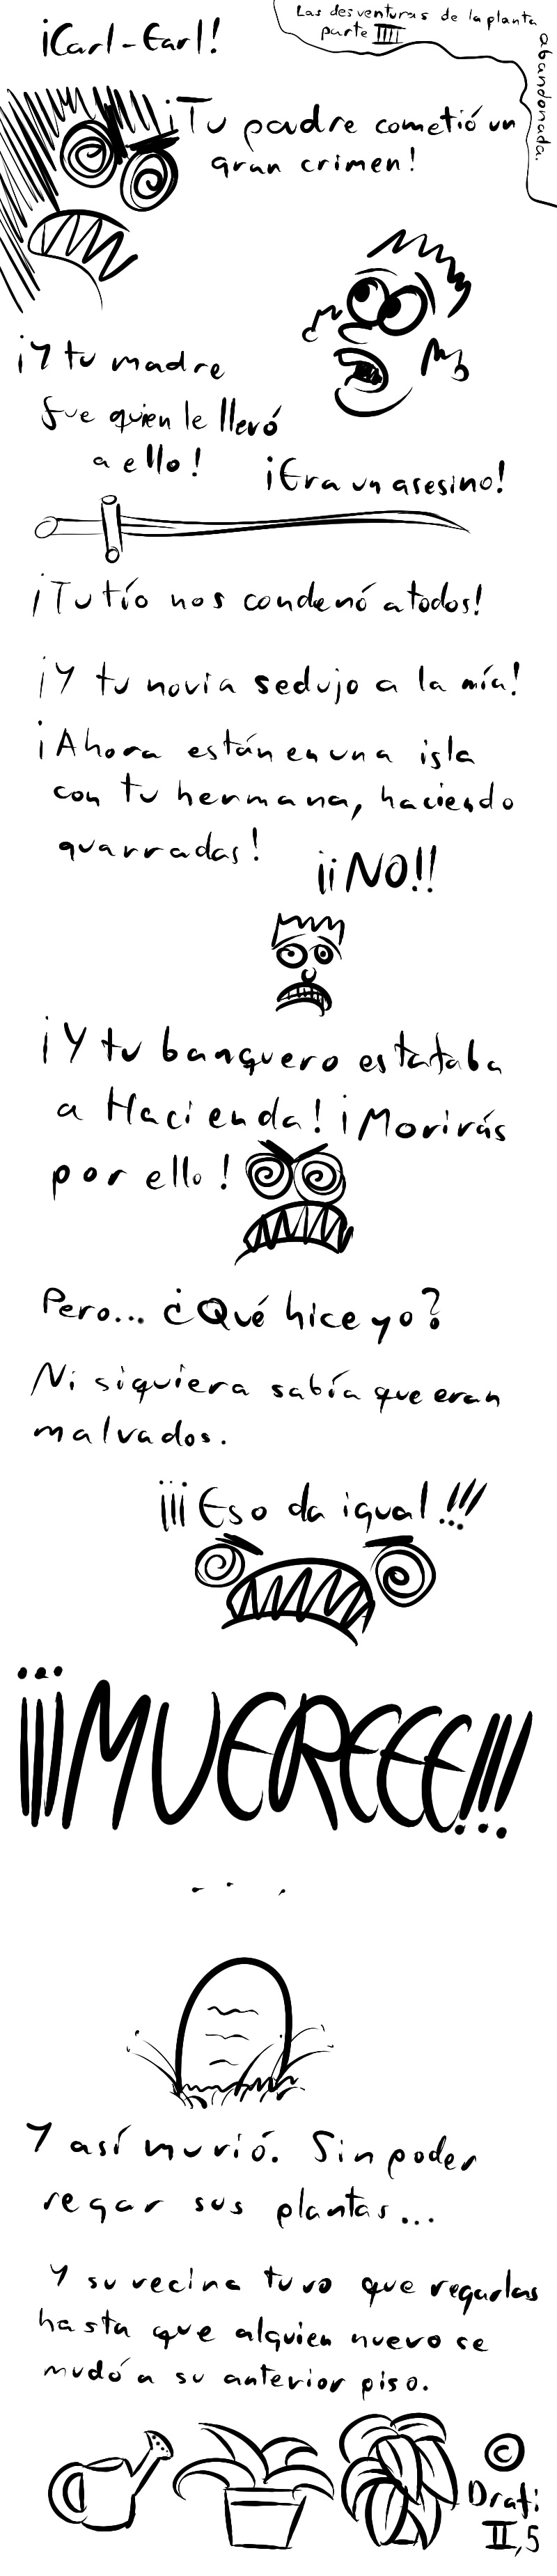 Las desventuras de la planta abandonada.
parte IIII
¡Carl-Earl!
¡Tu padre cometió un
gran crimen!
¡Y tu madre
fue quien le llevó
a ello!
¡Era un asesino!
¡Tu tío nos condenó a todos!
¡Y tu novia sedujo a la mía!
¡Ahora están en una isla
con tu hermana, haciendo
guarradas!
¡¡NO!!
¡Y tu banquero estafaba
a Hacienda! ¡Morirás
por ello!
Pero... ¿Qué hice yo?
Ni siquiera sabía que eran
malvados.
¡¡¡Eso da igual!!!
¡¡¡MUEREEE!!!
...
Y así murió. Sin poder
regar sus plantas...
Y su vecina tuvo que regarlas
hasta que alguien nuevo se
mudó a su anterior piso.
©
Drafi
II,5